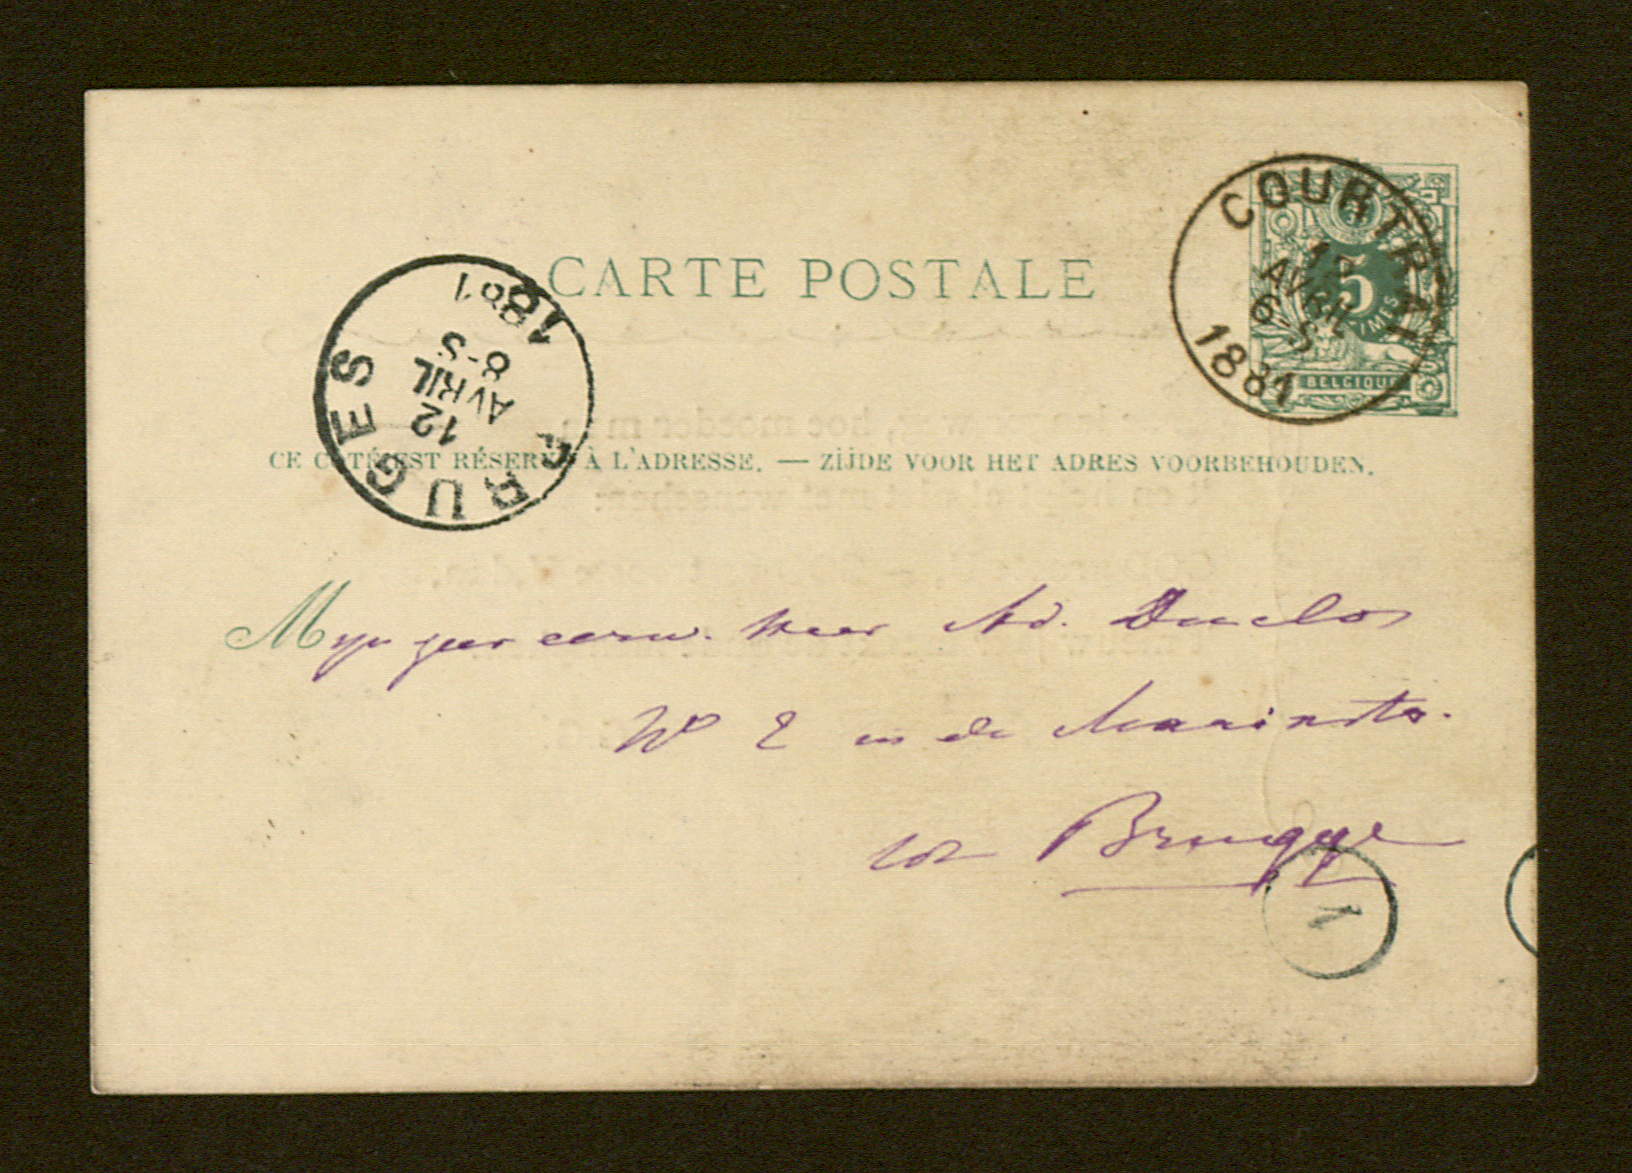 CARTE POSTALE
COURTRAI
AVRIL
6-S
1881
5
CENTIMES
BELGIQUE
BRUGES
12
AVRIL
8-S
1881
CE COTÉ EST RÉSERVÉ À L'ADRESSE. — ZIJDE VOOR HET ADRES VOORBEHOUDEN.
Mijn zeer eerw. Heer Ad. Duclos
No 2 in de
tot Brugge
1